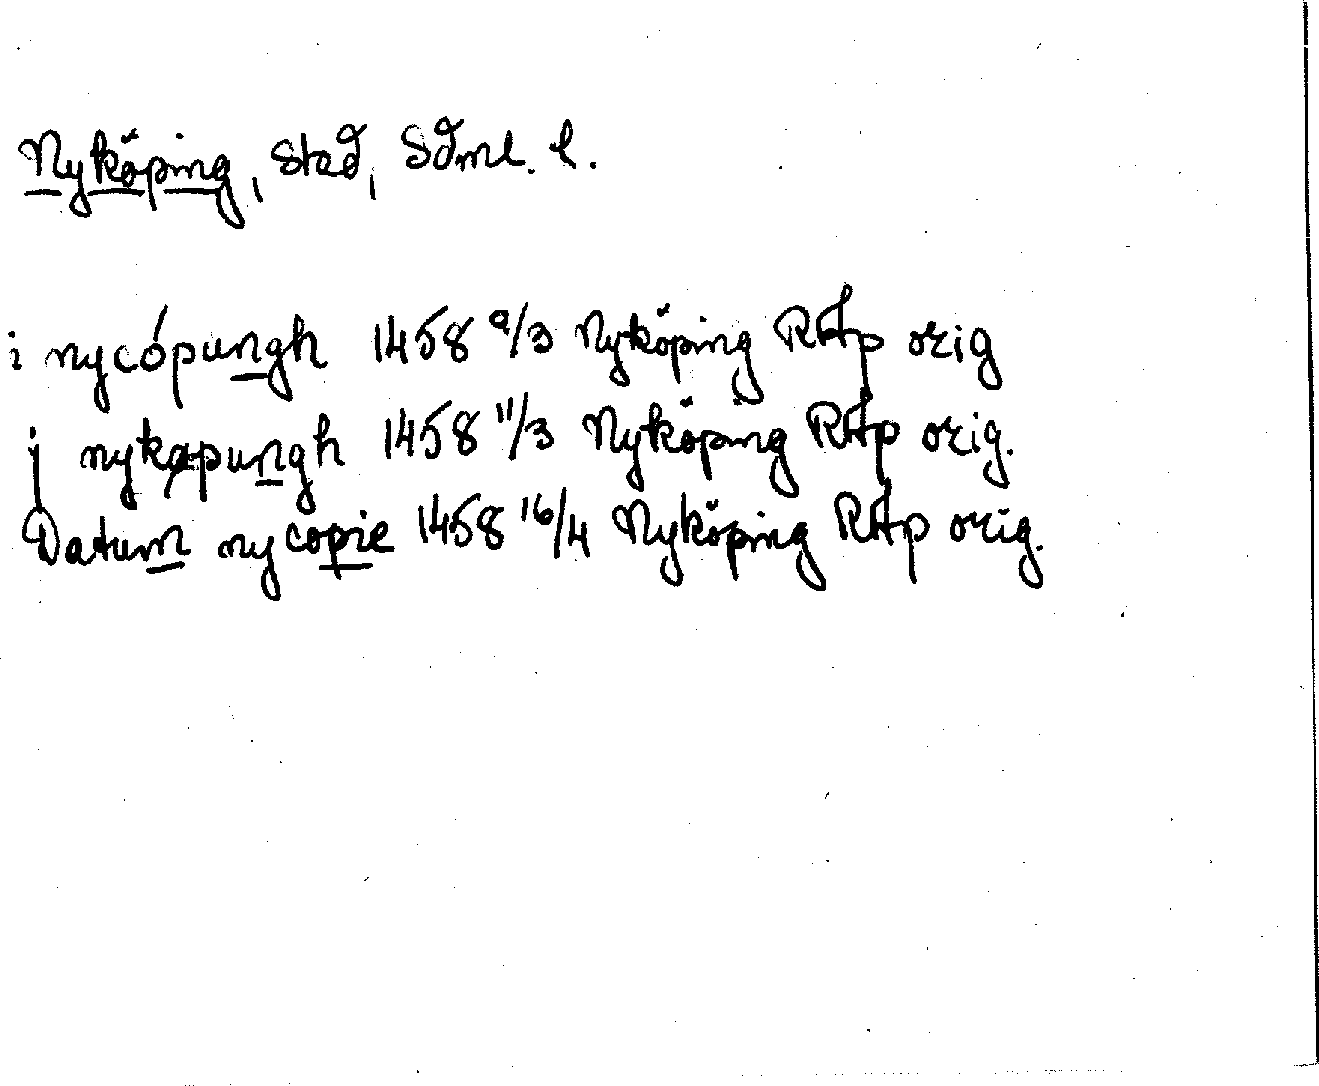 Nyköping, stad, Sdml. l.
i nycópungh 1458 9/3 Nyköping RAp orig
j nykøpungh 1458 11/3 Nyköping RAp orig.
Datum nycopie 1458 16/4 Nyköping RAp orig.